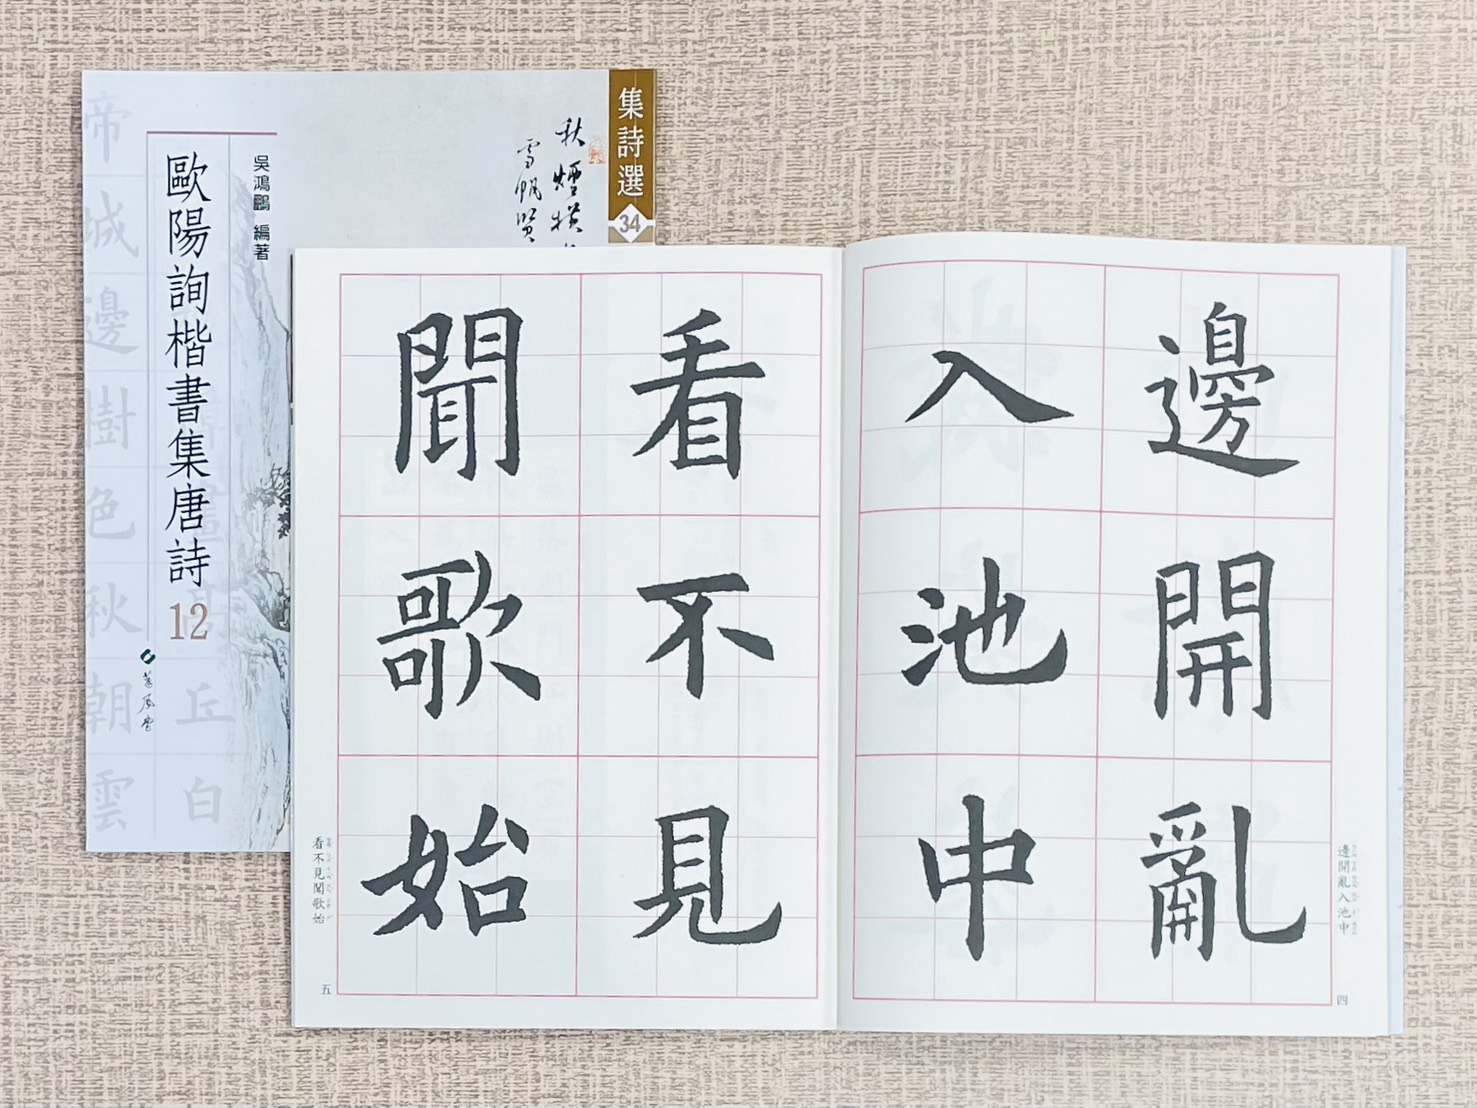 集詩選
34
秋煙橫
雪帆賢
吳鴻鵬 編著
歐陽詢楷書集唐詩
12
蕙風堂
帝城邊樹色秋朝雲
丘白
邊開亂
入池中
邊開亂入池中
四
看不見
聞歌始
看不見聞歌始
五